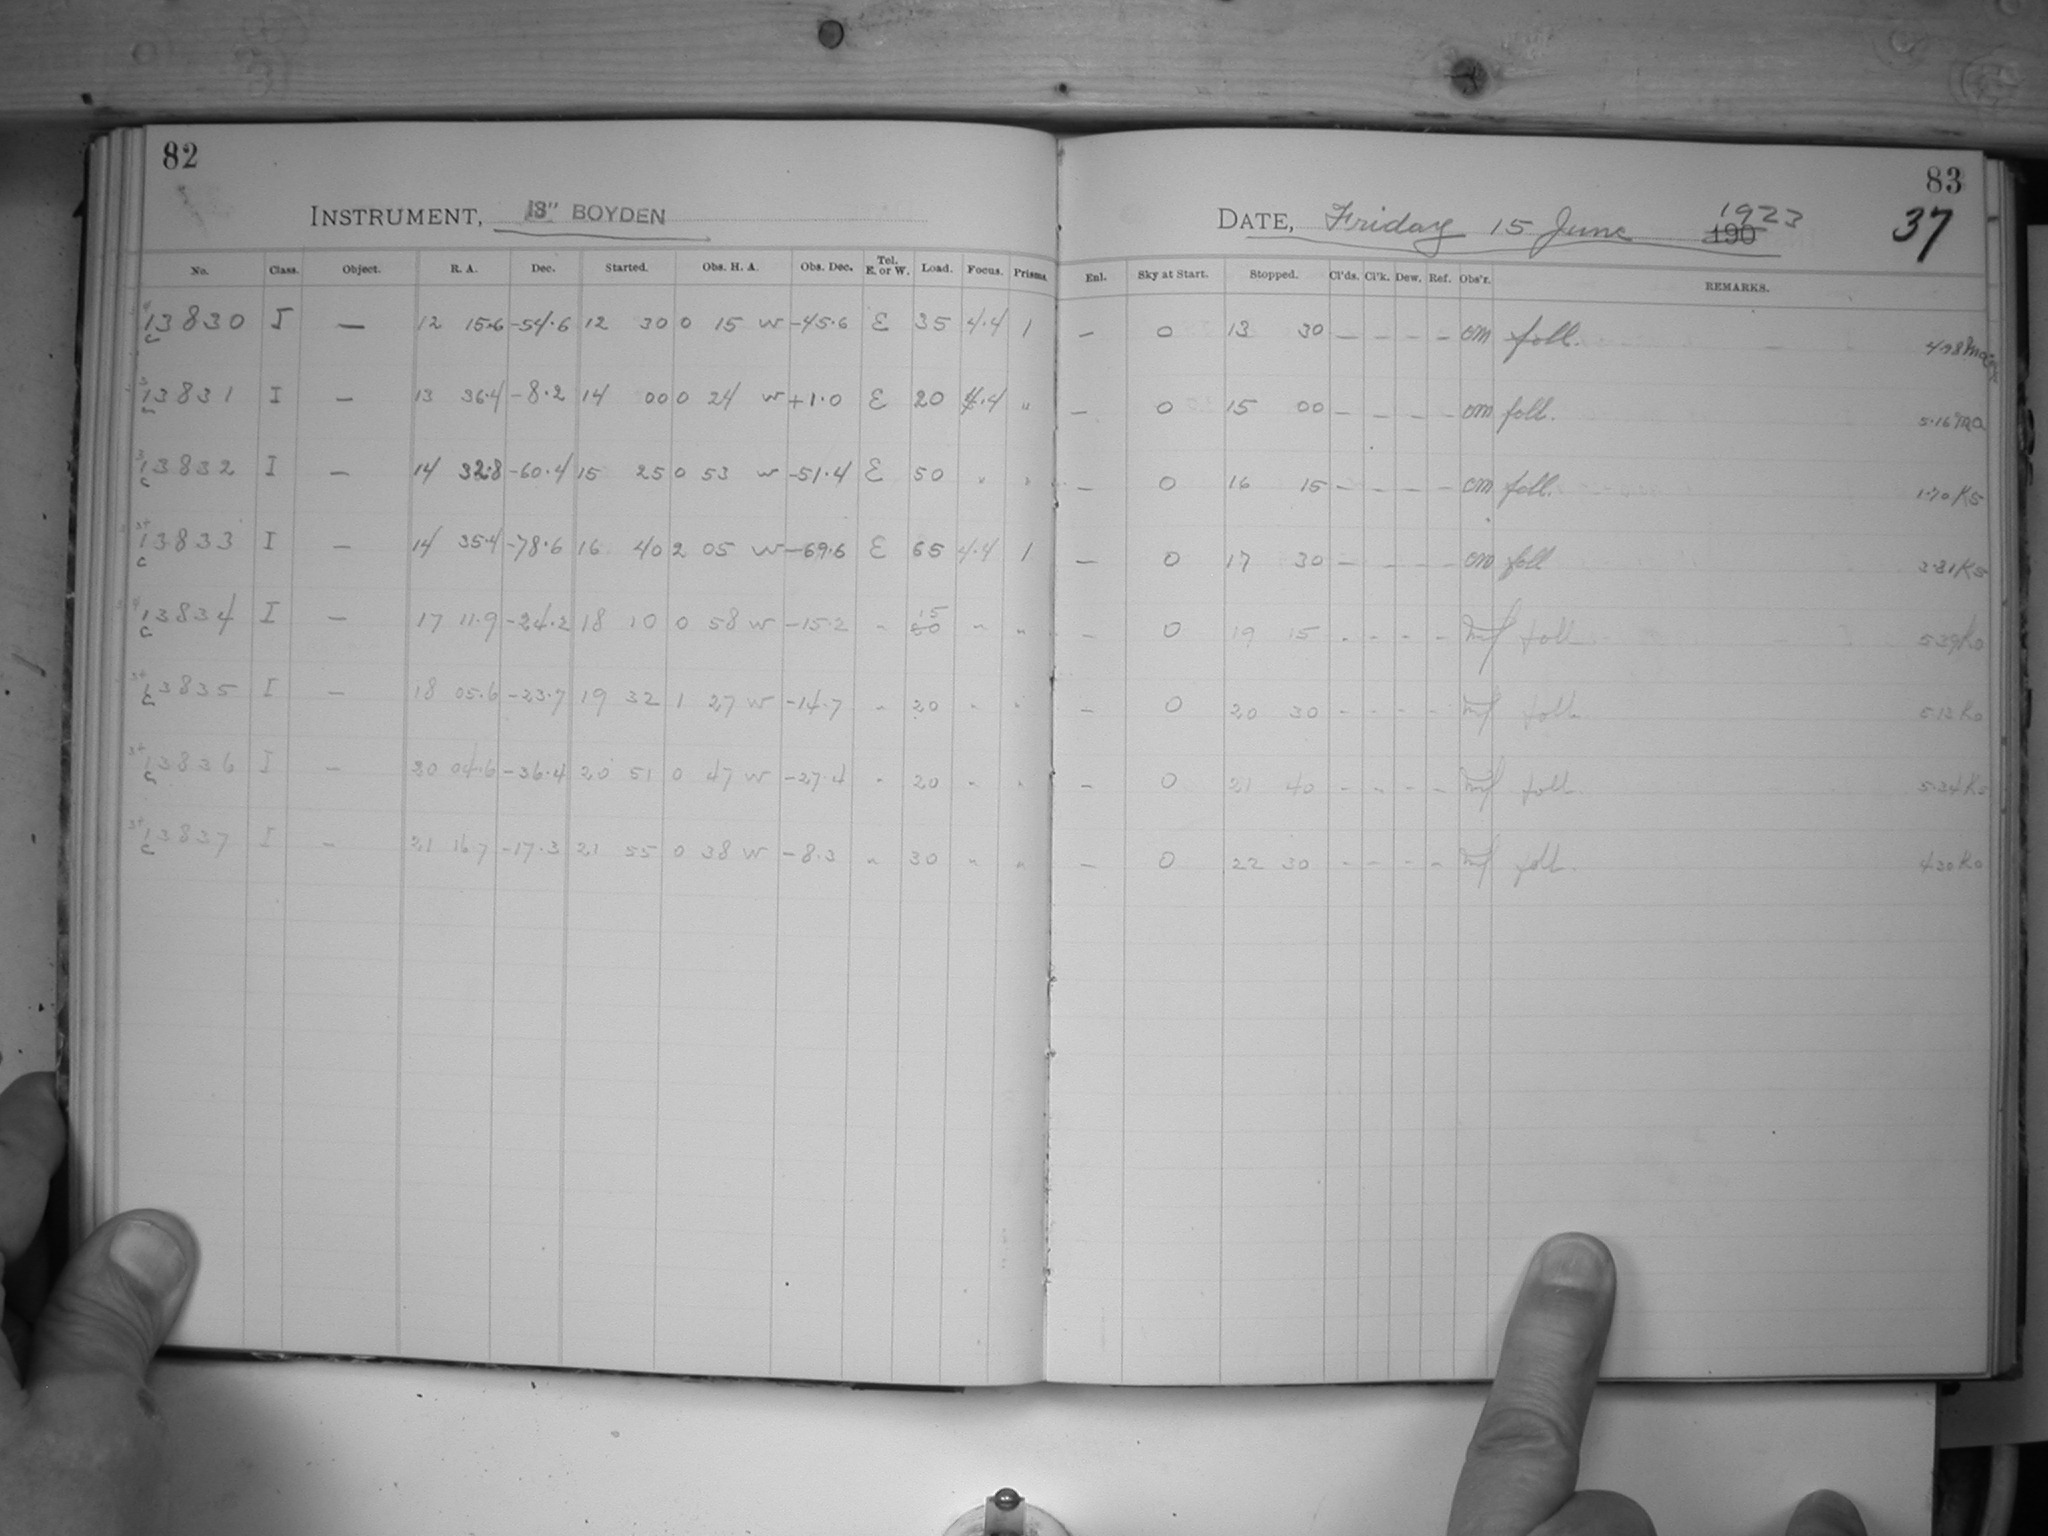 82
INSTRUMENT, 13" BOYDEN
No. Class. Object. R. A. Dec. Started. Obs. H. A. Obs. Dec. Tel. E. or W. Load. Focus. Prisms.
13830 I — 12 15.6 -54.6 12 30 0 15 W -45.6 E 35 4.4 1
13831 I — 13 36.4 -8.2 14 00 0 24 W +1.0 E 20 4.4 "
13832 I — 14 32.8 -60.4 15 25 0 53 W -51.4 E 50 " "
13833 I — 14 35.4 -78.6 16 40 2 05 W -69.6 E 65 4.4 1
13834 I — 17 11.9 -24.2 18 10 0 58 W -15.2 " 15 " "
13835 I — 18 05.6 -23.7 19 32 1 27 W -14.7 " 20 " "
13836 I — 20 04.6 -36.4 20 51 0 47 W -27.4 " 20 " "
13837 I — 21 16.7 -17.3 21 55 0 38 W -8.3 " 30 " "
83
37
DATE, Friday 15 June 1923
190
Enl. Sky at Start. Stopped. Cl'ds. Cl'k. Dew. Ref. Obs'r. REMARKS.
— 0 13 30 — — — — om foll.
— 0 15 00 — — — — om foll. 5.16 Ma
— 0 16 15 — — — — om foll. 1.70 K5
— 0 17 30 — — — — om foll 3.81 K5
— 0 19 15 — — — — foll 5.39 K0
— 0 20 30 — — — — foll 5.13 K0
— 0 21 40 — — — — foll. 5.34 K5
— 0 22 30 — — — — foll. 4.30 K0